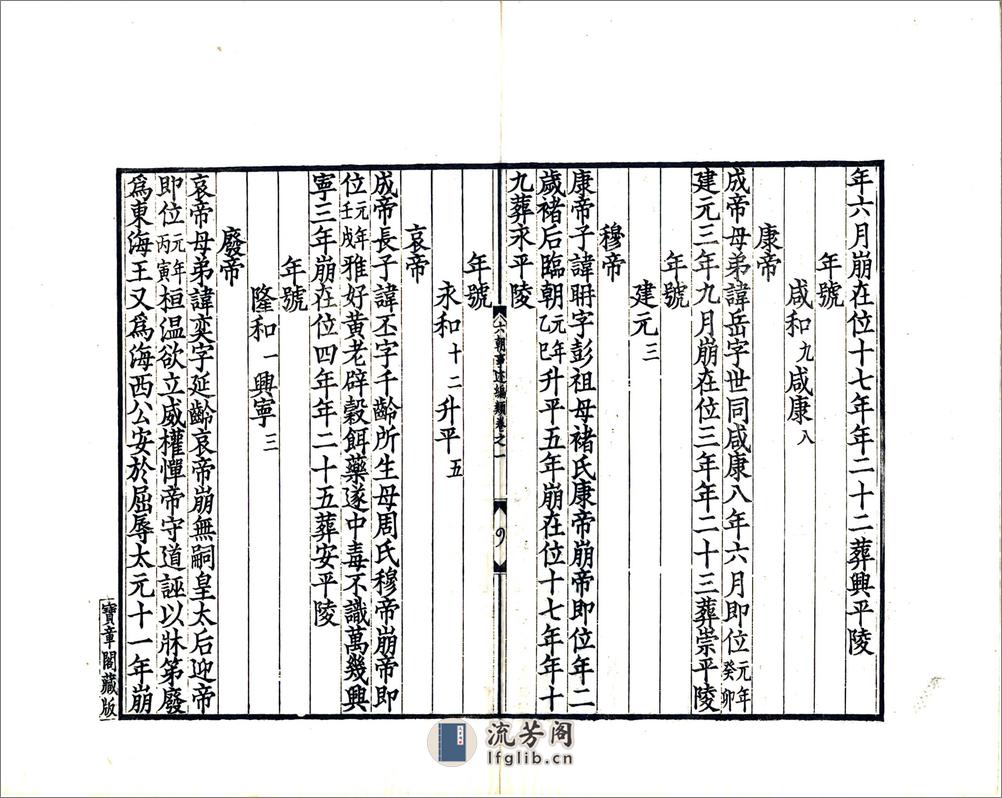 年六月崩在位十七年年二十二葬興平陵
年號
咸和九咸康八
康帝
成帝母弟諱岳字世同咸康八年六月即位元年癸卯
建元三年九月崩在位三年年二十三葬崇平陵
年號
建元三
穆帝
康帝子諱聃字彭祖母褚氏康帝崩帝即位年二
歲褚后臨朝元年乙巳升平五年崩在位十七年年十
九葬永平陵
六朝事迹編類卷之一
九
年號
永和十二升平五
哀帝
成帝長子諱丕字千齡所生母周氏穆帝崩帝即
位元年壬戌雅好黄老辟穀餌藥遂中毒不識萬幾興
寧三年崩在位四年年二十五葬安平陵
年號
隆和一興寧三
廢帝
哀帝母弟諱奕字延齡哀帝崩無嗣皇太后迎帝
即位元年丙寅桓温欲立威權憚帝守道誣以牀第廢
爲東海王又爲海西公安於屈辱太元十一年崩
寶章閣藏版
流芳阁
lfglib.cn